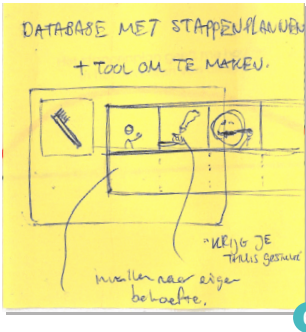 DATABASE MET STAPPENPLANNEN
+ TOOL OM TE MAKEN.
"KRIJG JE
THUIS GESTUURD"
invullen naar eigen
behoefte.